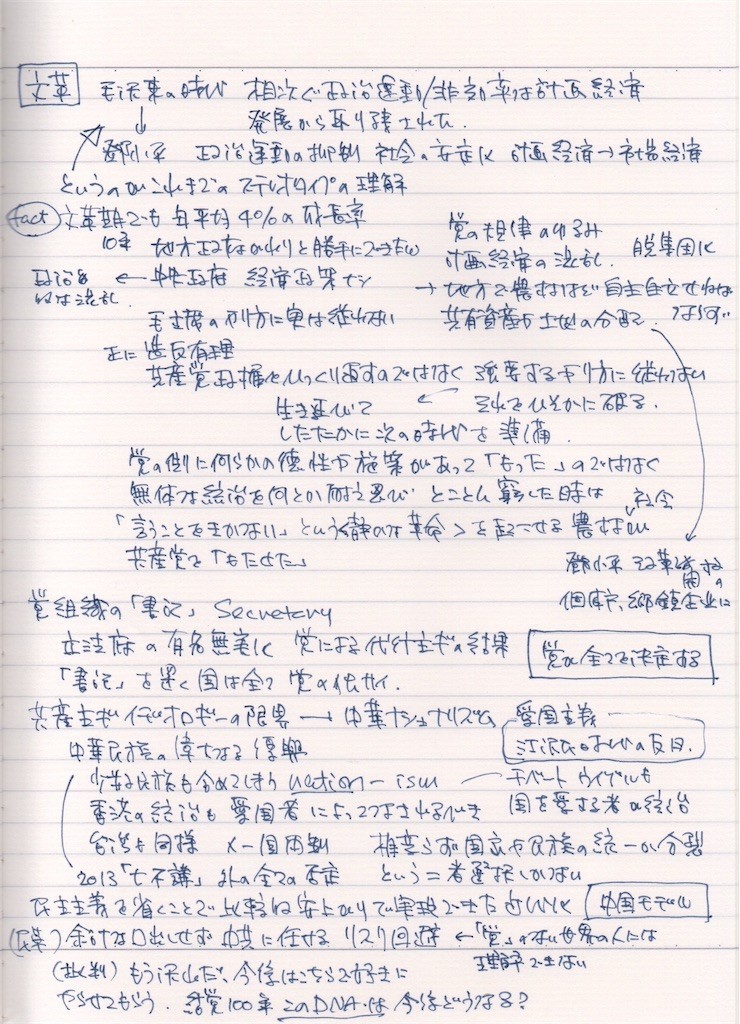 文革 毛沢東の時代 相次ぐ政治運動/非効率な計画経済
↓ 発展から取り残された.
鄧小平 政治運動の抑制 社会の安定化 計画経済→市場経済
というのがこれまでのステレオタイプの理解
fact 文革期でも年平均4%の成長率
10年 地方政府がわりと勝手にできた
政治的には混乱 ← 中央政府 経済政策ナシ
毛主席のやり方に実は従わない
正に造反有理
党の規律のゆるみ
計画経済の混乱. 脱集団化
→ 地方で農村など自主自立せねばならず
共有資産や土地の分配.
共産党政権をひっくり返すのではなく 強要するやり方に従わない
生き延びて ← それをひそかに破る.
したたかに次の時代を準備.
党の側に何らかの徳性や施策があって「もった」のではなく
無体な統治を何とか耐え忍び とことん窮した時は
「言うことをきかない」という<静かな革命>を起こせる農村社会が
共産党を「もたせた」
鄧小平 改革開放の
個体戸、郷鎮企業に
党組織の「書記」 Secretary
立法府の有名無実化 党による代行主義の結果
党が全てを決定する
「書記」を置く国は全て党の代行.
共産主義イデオロギーの限界 → 中華ナショナリズム 愛国主義
江沢民時代の反日.
中華民族の偉大なる復興
少数民族も含めてしまう nation-ism — チベート ウイグルも
香港の統治も愛国者によってなされるべき 国を愛する者の統治
台湾も同様 ×一国両制 相変らず国家や民族の統一か分裂
2013「七不講」 以外全ての否定 という二者選択しかない
民主主義を省くことで比較的安上がりで実現できた近代化 中国モデル
(民業) 余計な口出しせず 中共に任せる リスク回避 ← 「党」のない世界の人には
理解できない
(批判) もう沢山だ、今後はこちらで好きに
やらせてもらう. 結党100年 このDNAは今後どうなる?